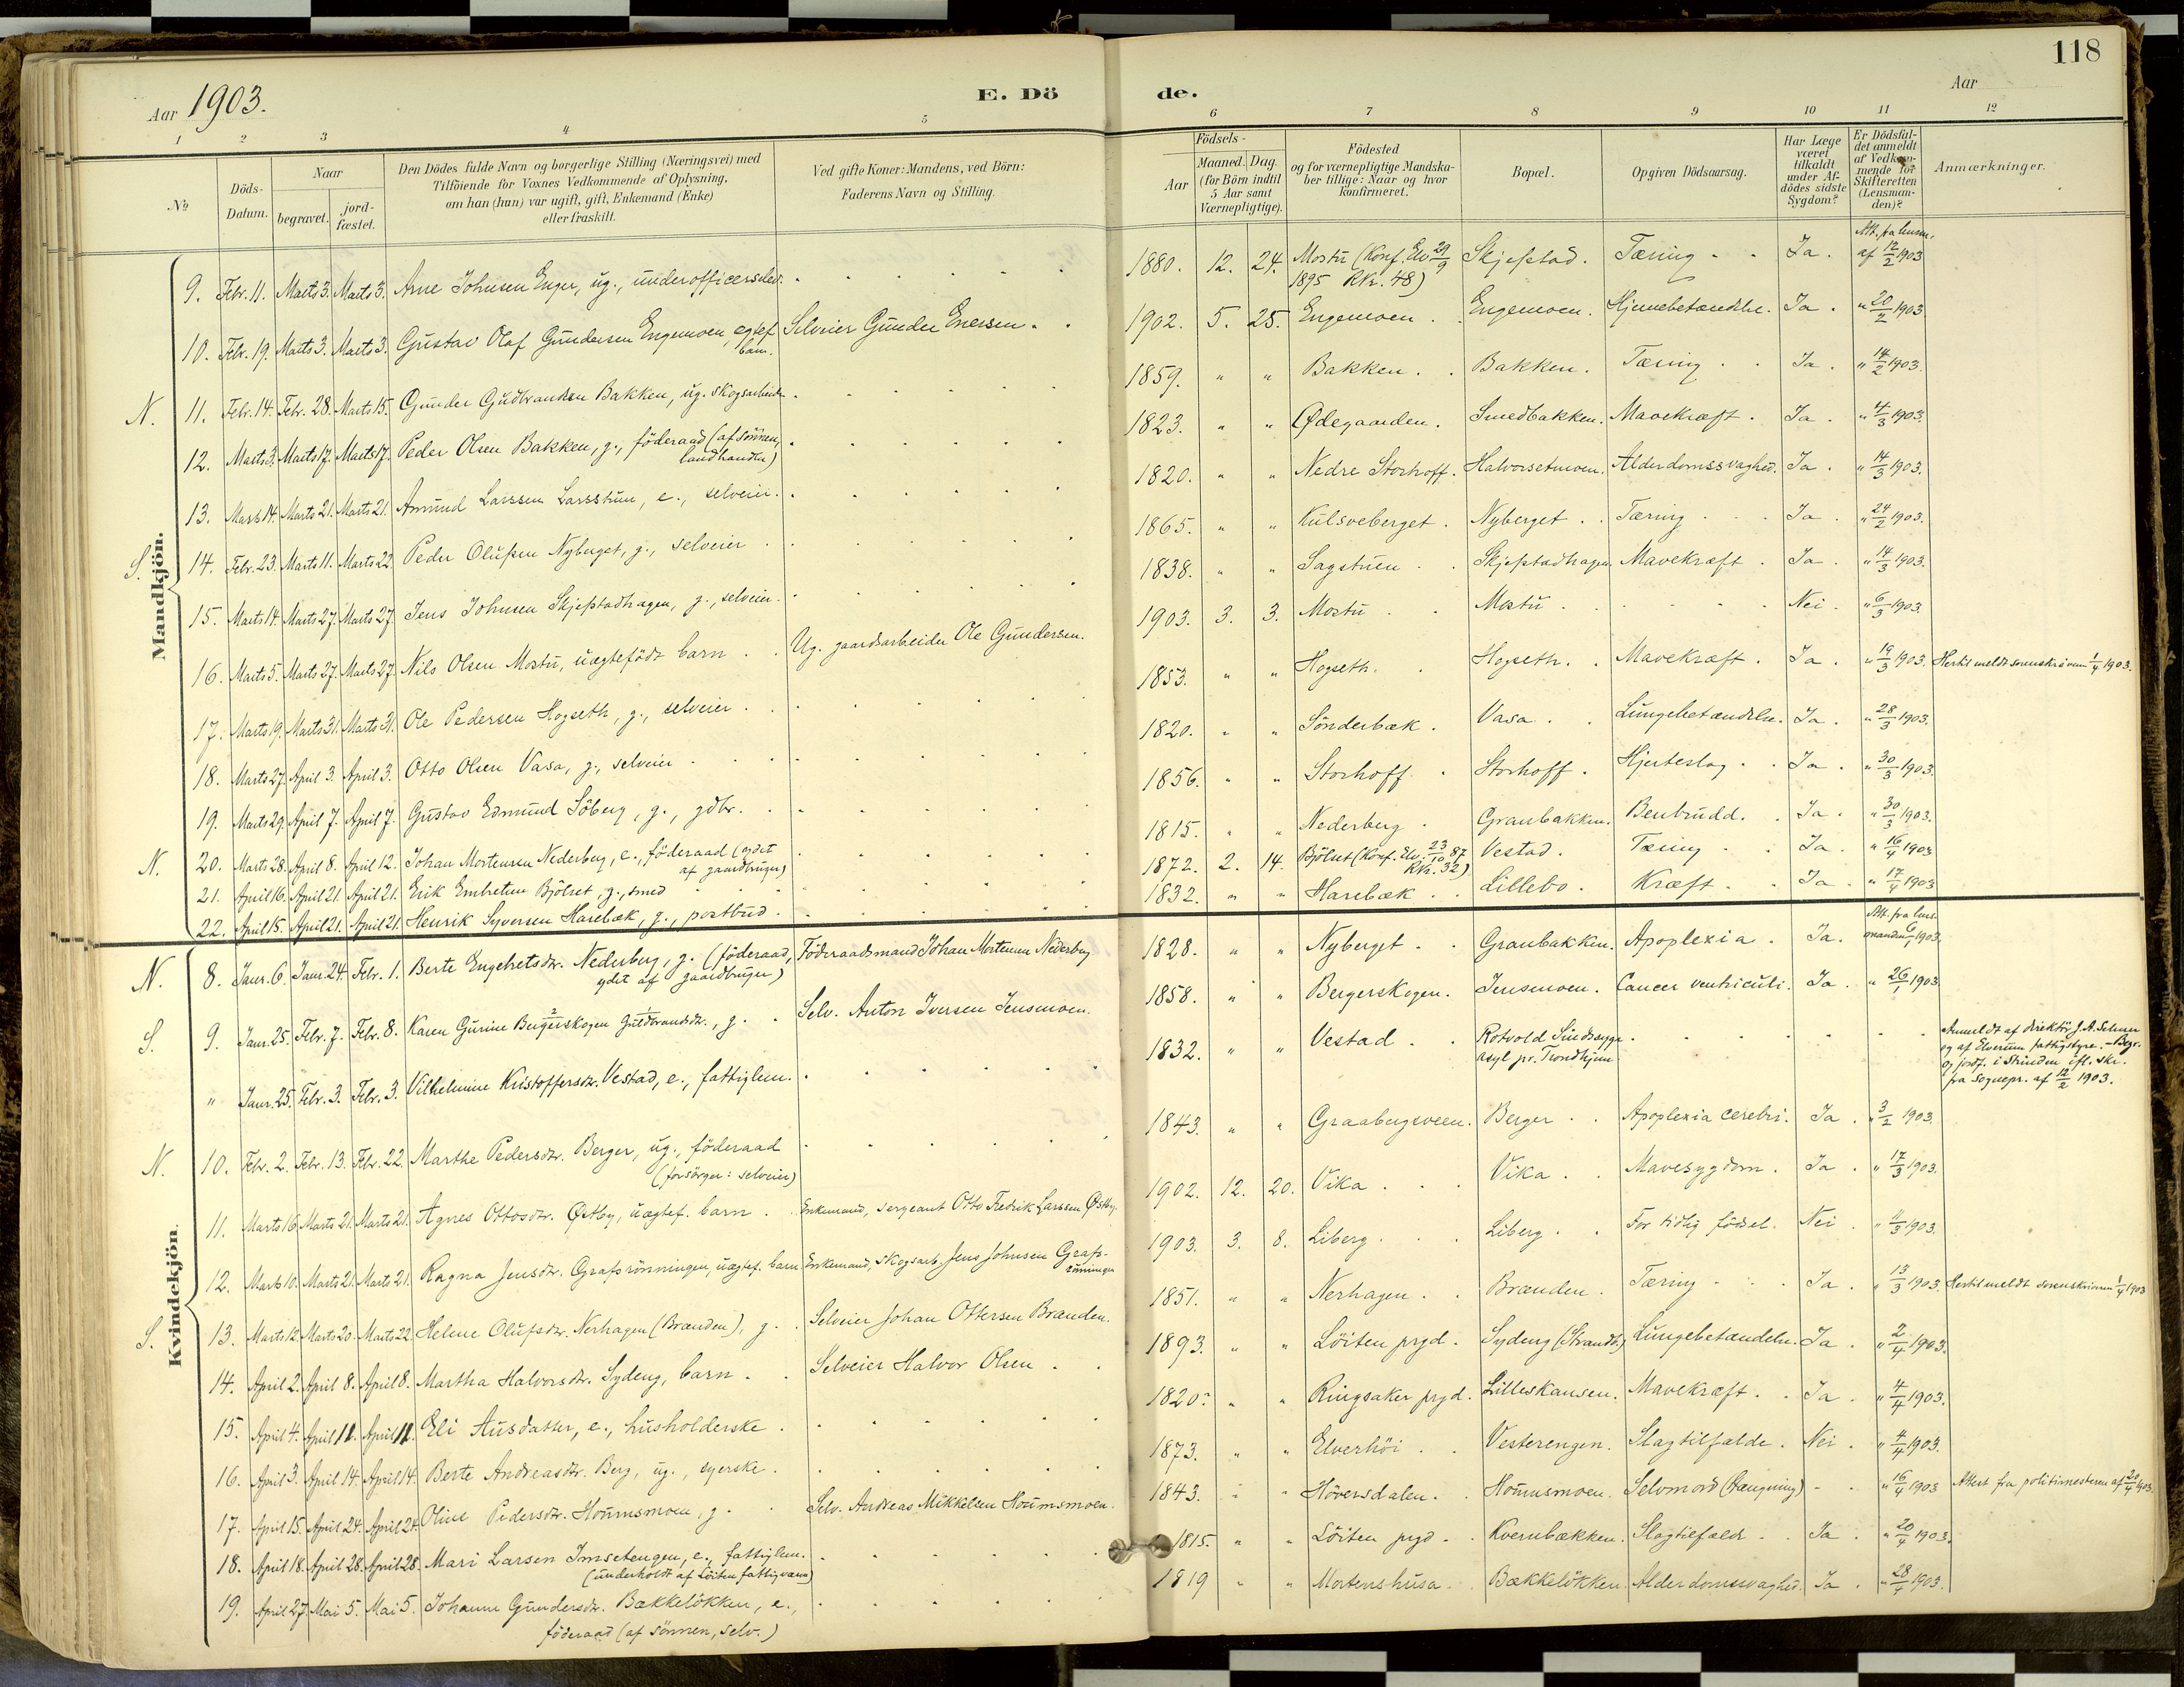 118
Aar 1903. E. Dö de. Aar
1 2 3 4 5 6 7 8 9 10 11 12
No
Döds-
Datum.
Naar
begravet.
jord-
fæstet.
Den Dödes fulde Navn og borgerlige Stilling (Næringsvei) med
Tilföiende for Voxnes Vedkommende af Oplysning,
om han (hun) var ugift, gift, Enkemand (Enke)
eller fraskilt.
Ved gifte Koner: Mandens, ved Börn:
Faderens Navn og Stilling.
Födsels-
Aar
Maaned. Dag.
(for Börn indtil
5 Aar samt
Værnepligtige).
Födested
og for værnepligtige Mandska-
ber tillige: Naar og hvor
konfirmeret.
Bopæl.
Opgiven Dödsaarsag.
Har Læge
været
tilkaldt
under Af-
dödes sidste
Sygdom?
Er Dödsfal-
det anmeldt
af Vedkom-
mende for
Skifteretten
(Lensman-
den)?
Anmærkninger.
Mandkjön.
9. Febr. 11. Marts 3. Marts 3. Arne Johnsen Enger, ug., underofficerselev. 1880. 12. 24. Mostu (Konf. Elv. 29/9 1895 RKr. 48) Skjefstad. Tæring Ja. Att. fra lensm. af 12/2 1903
10. Febr. 19. Marts 3. Marts 3. Gustav Olaf Gundersen Engemoen, egtef. barn. Selveier Gunder Enersen. 1902. 5. 25. Engemoen. Engemoen. Hjernebetændelse. Ja. " 20/2 1903
N. 11. Febr. 14. Febr. 28. Marts 15. Gunder Gudbrandsen Bakken, ug. skogsarbeider. 1859. " " Bakken. Bakken. Tæring Ja. " 14/2 1903.
12. Marts 3. Marts 17. Marts 17. Peder Olsen Bakken, g., föderaad (af sönnen, landhandler) 1823. " " Ødegaarden. Smedbakken. Mavekræft. Ja. " 4/3 1903.
13. Marts 14. Marts 21. Marts 21. Amund Larssen Larsstuen, e., selveier. 1820. " " Nedre Storhoff. Halvorsetmoen. Alderdomssvaghed. Ja. " 14/3 1903.
S. 14. Febr. 23. Marts 11. Marts 22. Peder Olufsen Nyberget, g., selveier 1865. " " Kulsveberget. Nyberget. Tæring Ja. " 24/2 1903.
15. Marts 14. Marts 27. Marts 27. Jens Johnsen Skjefstadhagen, g., selveier. 1838. " " Sagstuen Skjefstadhagen. Mavekræft. Ja. " 14/3 1903.
16. Marts 5. Marts 27. Marts 27. Nils Olsen Mostu, uægtefödt barn Ug. gaardsarbeider Ole Gundersen. 1903. 3. 3. Mostu Mostu Nei. " 6/3 1903
17. Marts 19. Marts 31. Marts 31. Ole Pedersen Hogseth, g., selveier. 1853. " " Hogseth. Hogseth. Mavekræft. Ja. " 19/3 1903. Hertil meldt sorenskriveren 1/4 1903.
18. Marts 27. April 3. April 3. Otto Olsen Vasa, g., selveier 1820. " " Sönderbæk. Vasa. Lungebetændelse. Ja. " 28/3 1903.
19. Marts 29. April 7. April 7. Gustav Edmund Söberg, g., gdbr. 1856. " " Storhoff. Storhoff. Hjerteslag. Ja. " 30/3 1903.
N. 20. Marts 28. April 8. April 12. Johan Mortensen Nederberg, e., föderaad (ydet af gaardbruger) 1815. " " Nederberg. Granbakken. Benbrudd. Ja. " 30/3 1903.
21. April 16. April 21. April 21. Erik Embretsen Bjölset, g., smed 1872. 2. 14. Bjölset (Konf. Elv. 23/10 87 RKr. 32) Vestad. Tæring Ja. " 16/4 1903
22. April 15. April 21. April 21. Henrik Syversen Harebæk, g., postbud. 1832. " " Harebæk Lillebo. Kræft. Ja. " 17/4 1903
Kvindekjön.
N. 8. Janr. 6. Janr. 24. Febr. 1. Berte Engebretsdr. Nederberg, g. (föderaad, ydet af gaardbruger) Föderaadsmand Johan Mortensen Nederberg 1828. " " Nyberget. Granbakken. Apoplexia. Ja. Att. fra lensmanden 6/1 1903.
S. 9. Janr. 25. Febr. 7. Febr. 8. Karen Gurine Bergerskogen Guldbrandsdr., g. Selv. Anton Iversen Jensmoen. 1858. " " Bergerskogen. Jensmoen. Cancer ventriculi. Ja. " 26/1 1903
" Janr. 25. Febr. 3. Febr. 3. Vilhelmine Kristoffersdr. Vestad, e., fattiglem. 1832. " " Vestad Rotvold Sindssyge asyl pr. Trondhjem Anmeldt af direktör J. A. og af Elverum fattigstyre. - Begr. og jordf. i Strinden ifl. skr. fra Sognepr. af 12/2 1903.
N. 10. Febr. 2. Febr. 13. Febr. 22. Marthe Pedersdr. Berger, ug., föderaad (forsörger: selveier) 1843. " " Graabergsveen. Berger Apoplexia cerebri. Ja. " 3/2 1903.
11. Marts 16. Marts 21. Marts 21. Agnes Ottosdr. Østby, uægtef. barn. Enkemand, sergeant Otto Fredrik Larssen Østby. 1902. 12. 20. Vika Vika Mavesygdom. Ja. " 17/3 1903.
12. Marts 10. Marts 21. Marts 21. Ragna Jensdr. Grafsrönningen, uægtef. barn. Enkemand, skogsarb. Jens Johnsen Grafsrönningen 1903. 3. 8. Liberg Liberg For tidlig födsel. Nei. " 11/3 1903.
S. 13. Marts 12. Marts 20. Marts 22. Helene Olufsdr. Nerhagen (Brænden), g. Selveier Johan Ottersen Brænden. 1851. " " Nerhagen. Brænden. Tæring Ja. " 13/3 1903. Hertil meldt sorenskriveren 1/4 1903
14. April 2. April 8. April 8. Martha Halvorsdr. Sydeng, barn. Selveier Halvor Olsen 1893. " " Löiten prgd. Sydeng (Strandb.) Lungebetændelse. Ja. " 2/4 1903.
15. April 4. April 11. April 11. Eli Ausdatter, e., husholderske. 1820. " " Ringsaker prgd. Lilleskansen. Mavekræft. Ja. " 4/4 1903.
16. April 3. April 14. April 14. Berte Andreasdr. Berg, ug., syerske. 1873. " " Elverhöi Vesterengen. Slagtilfælde. Nei. " 4/4 1903.
17. April 15. April 24. April 24. Oline Pedersdr. Hournsmoen, g. Selv. Andreas Mikkelsen Hournsmoen. 1843. " " Höversdalen. Hournsmoen. Selvmord (Hængning) " 16/4 1903 Attest fra politimesteren af 20/4 1903.
18. April 18. April 28. April 28. Mari Larsen Imsetengen, e., fattiglem. (underholdt af Löiten fattigvæsen) 1815. " " Löiten prgd. Kvernbækken. Slagtilfælde Ja. " 20/4 1903.
19. April 27. Mai 5. Mai 5. Johanne Gundersdr. Bækkelökken, e., föderaad (af sönnen, selv.) 1819 " " Mortenshusa. Bækkelökken. Alderdomssvaghed. Ja. " 28/4 1903.